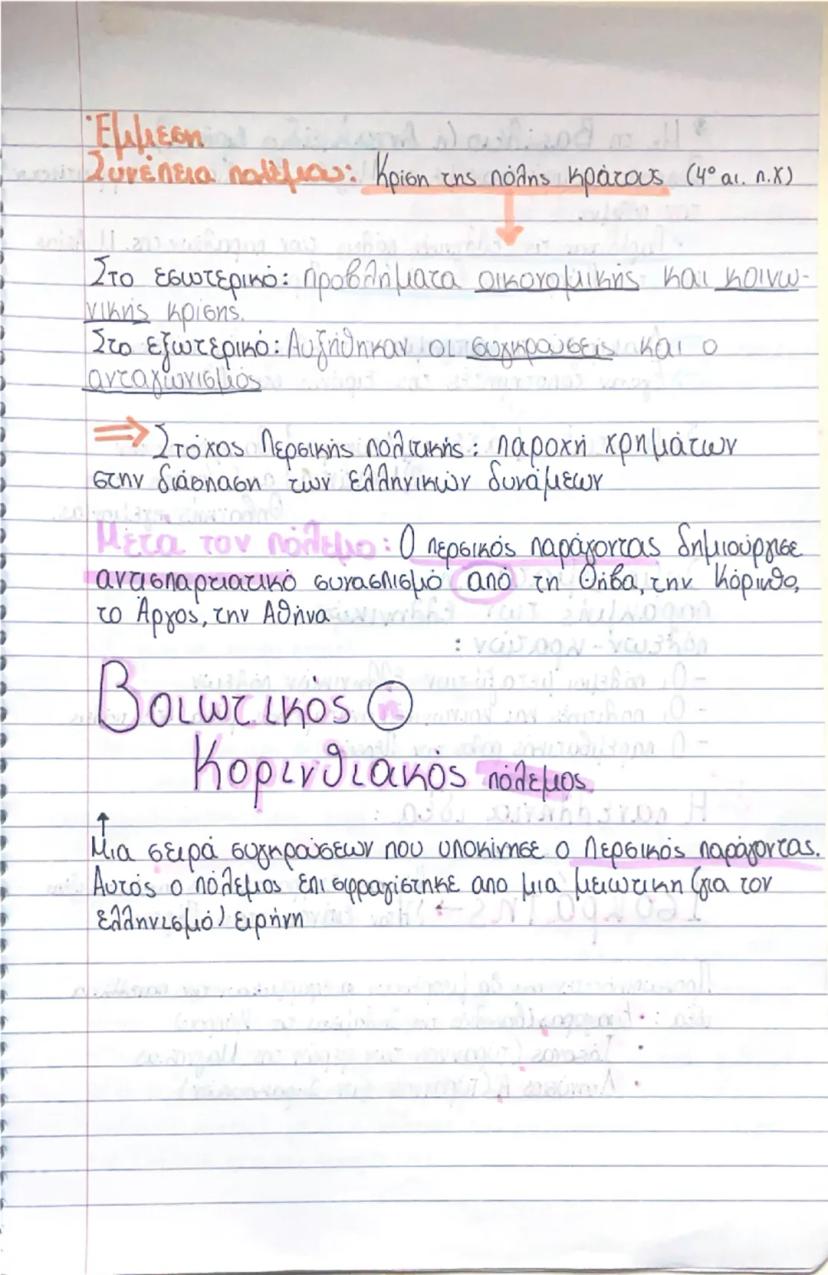 Έμμεση
Συνέπεια πολέμου: Κρίση της πόλης κράτους (4ο αι. π.Χ)
Στο εσωτερικό: προβλήματα οικονομικής και κοινω-
νικής κρίσης.
Στο εξωτερικό: Αυξήθηκαν οι συγκρούσεις και ο
ανταγωνισμός
⇒ Στόχος Περσικής πολιτικής: παροχή χρημάτων
στην διάσπαση των ελληνικών δυνάμεων
Μετά τον πόλεμο: Ο περσικός παράγοντας δημιούργισε
αντισπαρτιατικό συνασπισμό από τη Θήβα, την Κόρινθο,
το Άργος, την Αθήνα
Βοιωτικός ή
Κορινθιακός πόλεμος
↑
Μια σειρά συγκρούσεων που υποκίνησε ο Περσικός παράγοντας.
Αυτός ο πόλεμος επισφραγίστηκε απο μια μειωτικη (για τον
ελληνισμό) ειρήνη